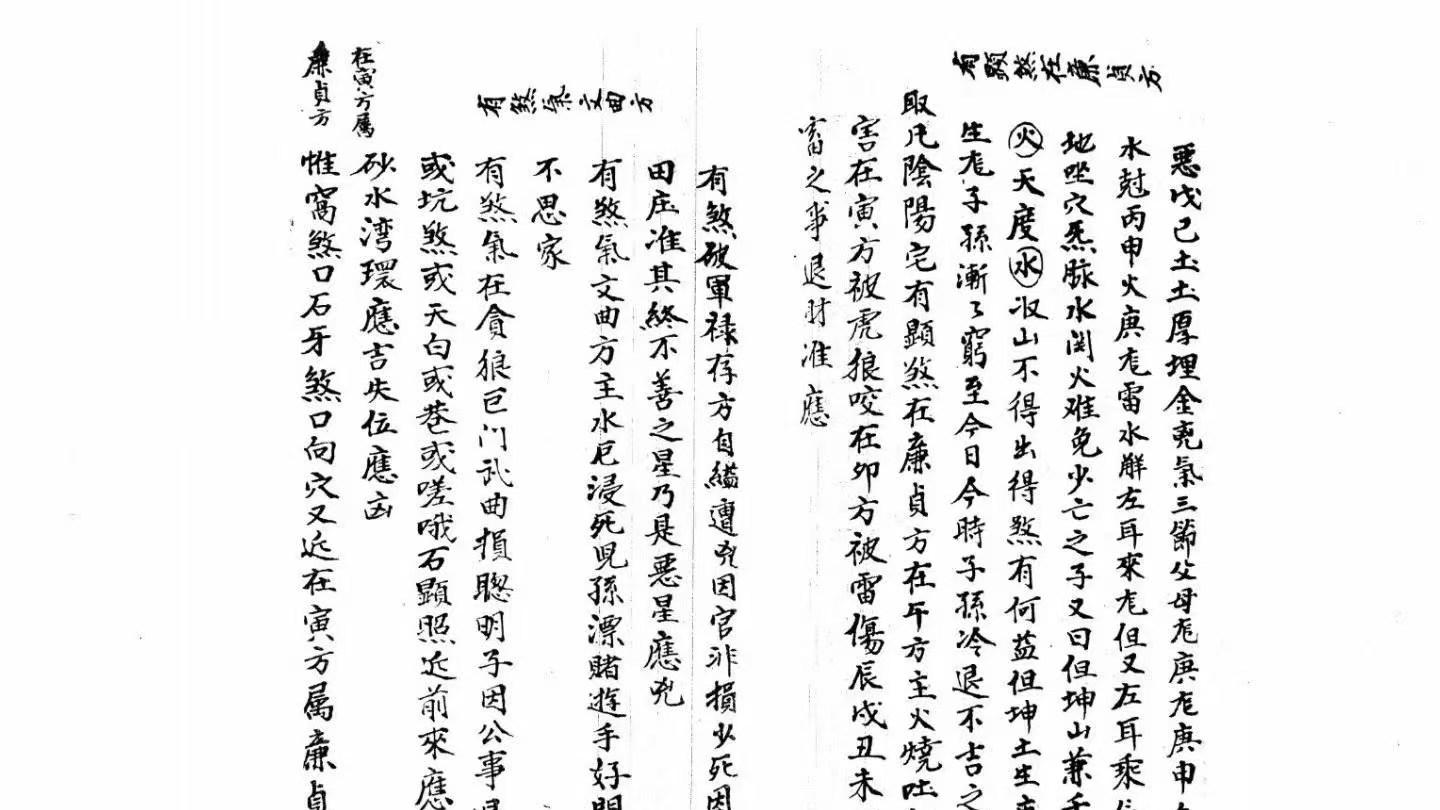 有顯煞在廉貞方
惡戊己土土厚埋金堯氣三節父母庚庚申
水尅丙申火庚雷水解左耳來但又左耳乘
地坐穴炁脉水関火难免少亡之子又曰但坤山兼
火天度水収山不得出得煞有何益但坤土生
生子孫漸〻窮至今日今時子孫冷退不吉之
取凡陰陽宅有顯煞在廉貞方在午方主火燒吐
害在寅方被虎狼咬在卯方被雷傷辰戌丑未
畜之事退財准應
有煞破軍禄存方自縊遭兇因官非損少死因
田庄准其終不善之星乃是惡星應兇
有煞氣文曲方
有煞氣文曲方主水厄浸死児孫漂賭遊手好閒
不思家
有煞氣在貪狼巨门武曲損聰明子因公事
或坑煞或天白或巷或嗟哦石顯照近前來應
砂水湾環應吉失位應凶
在寅方屬
廉貞方
惟窩煞口石牙煞口向穴又近在寅方屬廉貞